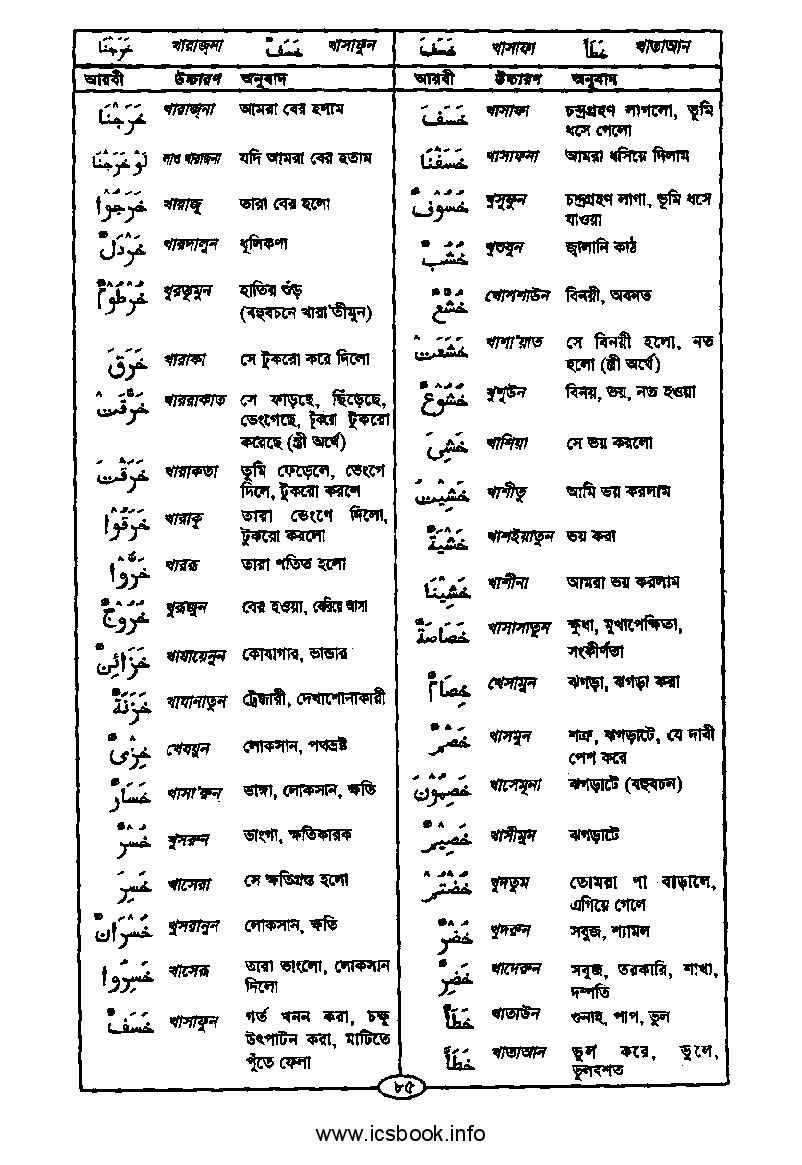 خَرَجْنَا খারাজ্না خَسْفٌ খাসাফুন
خَسَفَ খাসাফা خَطَأً খাতাআন
আরবী উচ্চারণ অনুবাদ
خَرَجْنَا খারাজ্না আমরা বের হলাম
لَوْ خَرَجْنَا লাও খারাজনা যদি আমরা বের হতাম
خَرَجُوْا খারাজু তারা বের হলো
خَرْدَلٌ খারদালুন ধূলিকণা
خُرْطُوْمٌ খুরতুমুন হাতির শুঁড়
(বহুবচনে খারা'তীমুন)
خَرَقَ খারাকা সে টুকরো করে দিলো
خَرَّقَتْ খাররাকাত সে ফাড়ছে, ছিঁড়েছে,
ভেংগেছে, টুকরো টুকরো
করেছে (স্ত্রী অর্থে)
خَرَقْتَ খারাকতা তুমি ফেড়েলে, ভেংগে
দিলে, টুকরো করলে
خَرَقُوْا খারাকু তারা ভেংগে দিলো,
টুকরো করলো
خَرُّوْا খাররু তারা পতিত হলো
خُرُوْجٌ খুরূজুন বের হওয়া, বেরিয়ে আসা
خَزَائِنُ খাযায়েনুন কোষাগার, ভান্ডার
خَزَنَةٌ খাযানাতুন ট্রেজারী, দেখাশোনাকারী
خِزْىٌ খেযয়ুন লোকসান, পথভ্রষ্ট
خَسَارٌ খাসা'রুন ভাঙ্গা, লোকসান, ক্ষতি
خُسْرٌ খুসরুন ভাংগা, ক্ষতিকারক
خَسِرَ খাসেরা সে ক্ষতিগ্রস্ত হলো
خُسْرَانٌ খুসরানুন লোকসান, ক্ষতি
خَسِرُوْا খাসেরূ তারা ভাংলো, লোকসান
দিলো
خَسْفٌ খাসাফুন গর্ত খনন করা, চক্ষু
উৎপাটন করা, মাটিতে
পুঁতে ফেলা
আরবী উচ্চারণ অনুবাদ
خَسَفَ খাসাফা চন্দ্রগ্রহণ লাগলো, ভূমি
ধসে গেলো
خَسَفْنَا খাসাফনা আমরা ধসিয়ে দিলাম
خُسُوْفٌ খুসুফুন চন্দ্রগ্রহণ লাগা, ভূমি ধসে
যাওয়া
خُشُبٌ খুশুবুন জ্বালানি কাঠ
خُشَّعٌ খোশশাউন বিনয়ী, অবনত
خَشَعَتْ খাশা'য়াত সে বিনয়ী হলো, নত
হলো (স্ত্রী অর্থে)
خُشُوْعٌ খুশুউন বিনয়, ভয়, নত হওয়া
خَشِىَ খাশিয়া সে ভয় করলো
خَشِيْتُ খাশীতু আমি ভয় করলাম
خَشْيَةٌ খাশইয়াতুন ভয় করা
خَشِيْنَا খাশীনা আমরা ভয় করলাম
خَصَاصَةٌ খাসাসাতুন ক্ষুধা, মুখাপেক্ষিতা,
সংকীর্ণতা
خِصَامٌ খেসামুন ঝগড়া, ঝগড়া করা
خَصْمٌ খাসমুন শত্রু, ঝগড়াটে, যে দাবী
পেশ করে
خَصِمُوْنَ খাসেমুনা ঝগড়াটে (বহুবচন)
خَصِيْمٌ খাসীমুন ঝগড়াটে
خُضْتُمْ খুদতুম তোমরা পা বাড়ালে,
এগিয়ে গেলে
خُضْرٌ খুদরুন সবুজ, শ্যামল
خَضِرٌ খাদেরুন সবুজ, তরকারি, শাখা,
দম্পতি
خَطَأٌ খাতাউন গুনাহ, পাপ, ভুল
خَطَأً খাতাআন ভুল করে, ভুলে,
ভুলবশত
৮৫
www.icsbook.info